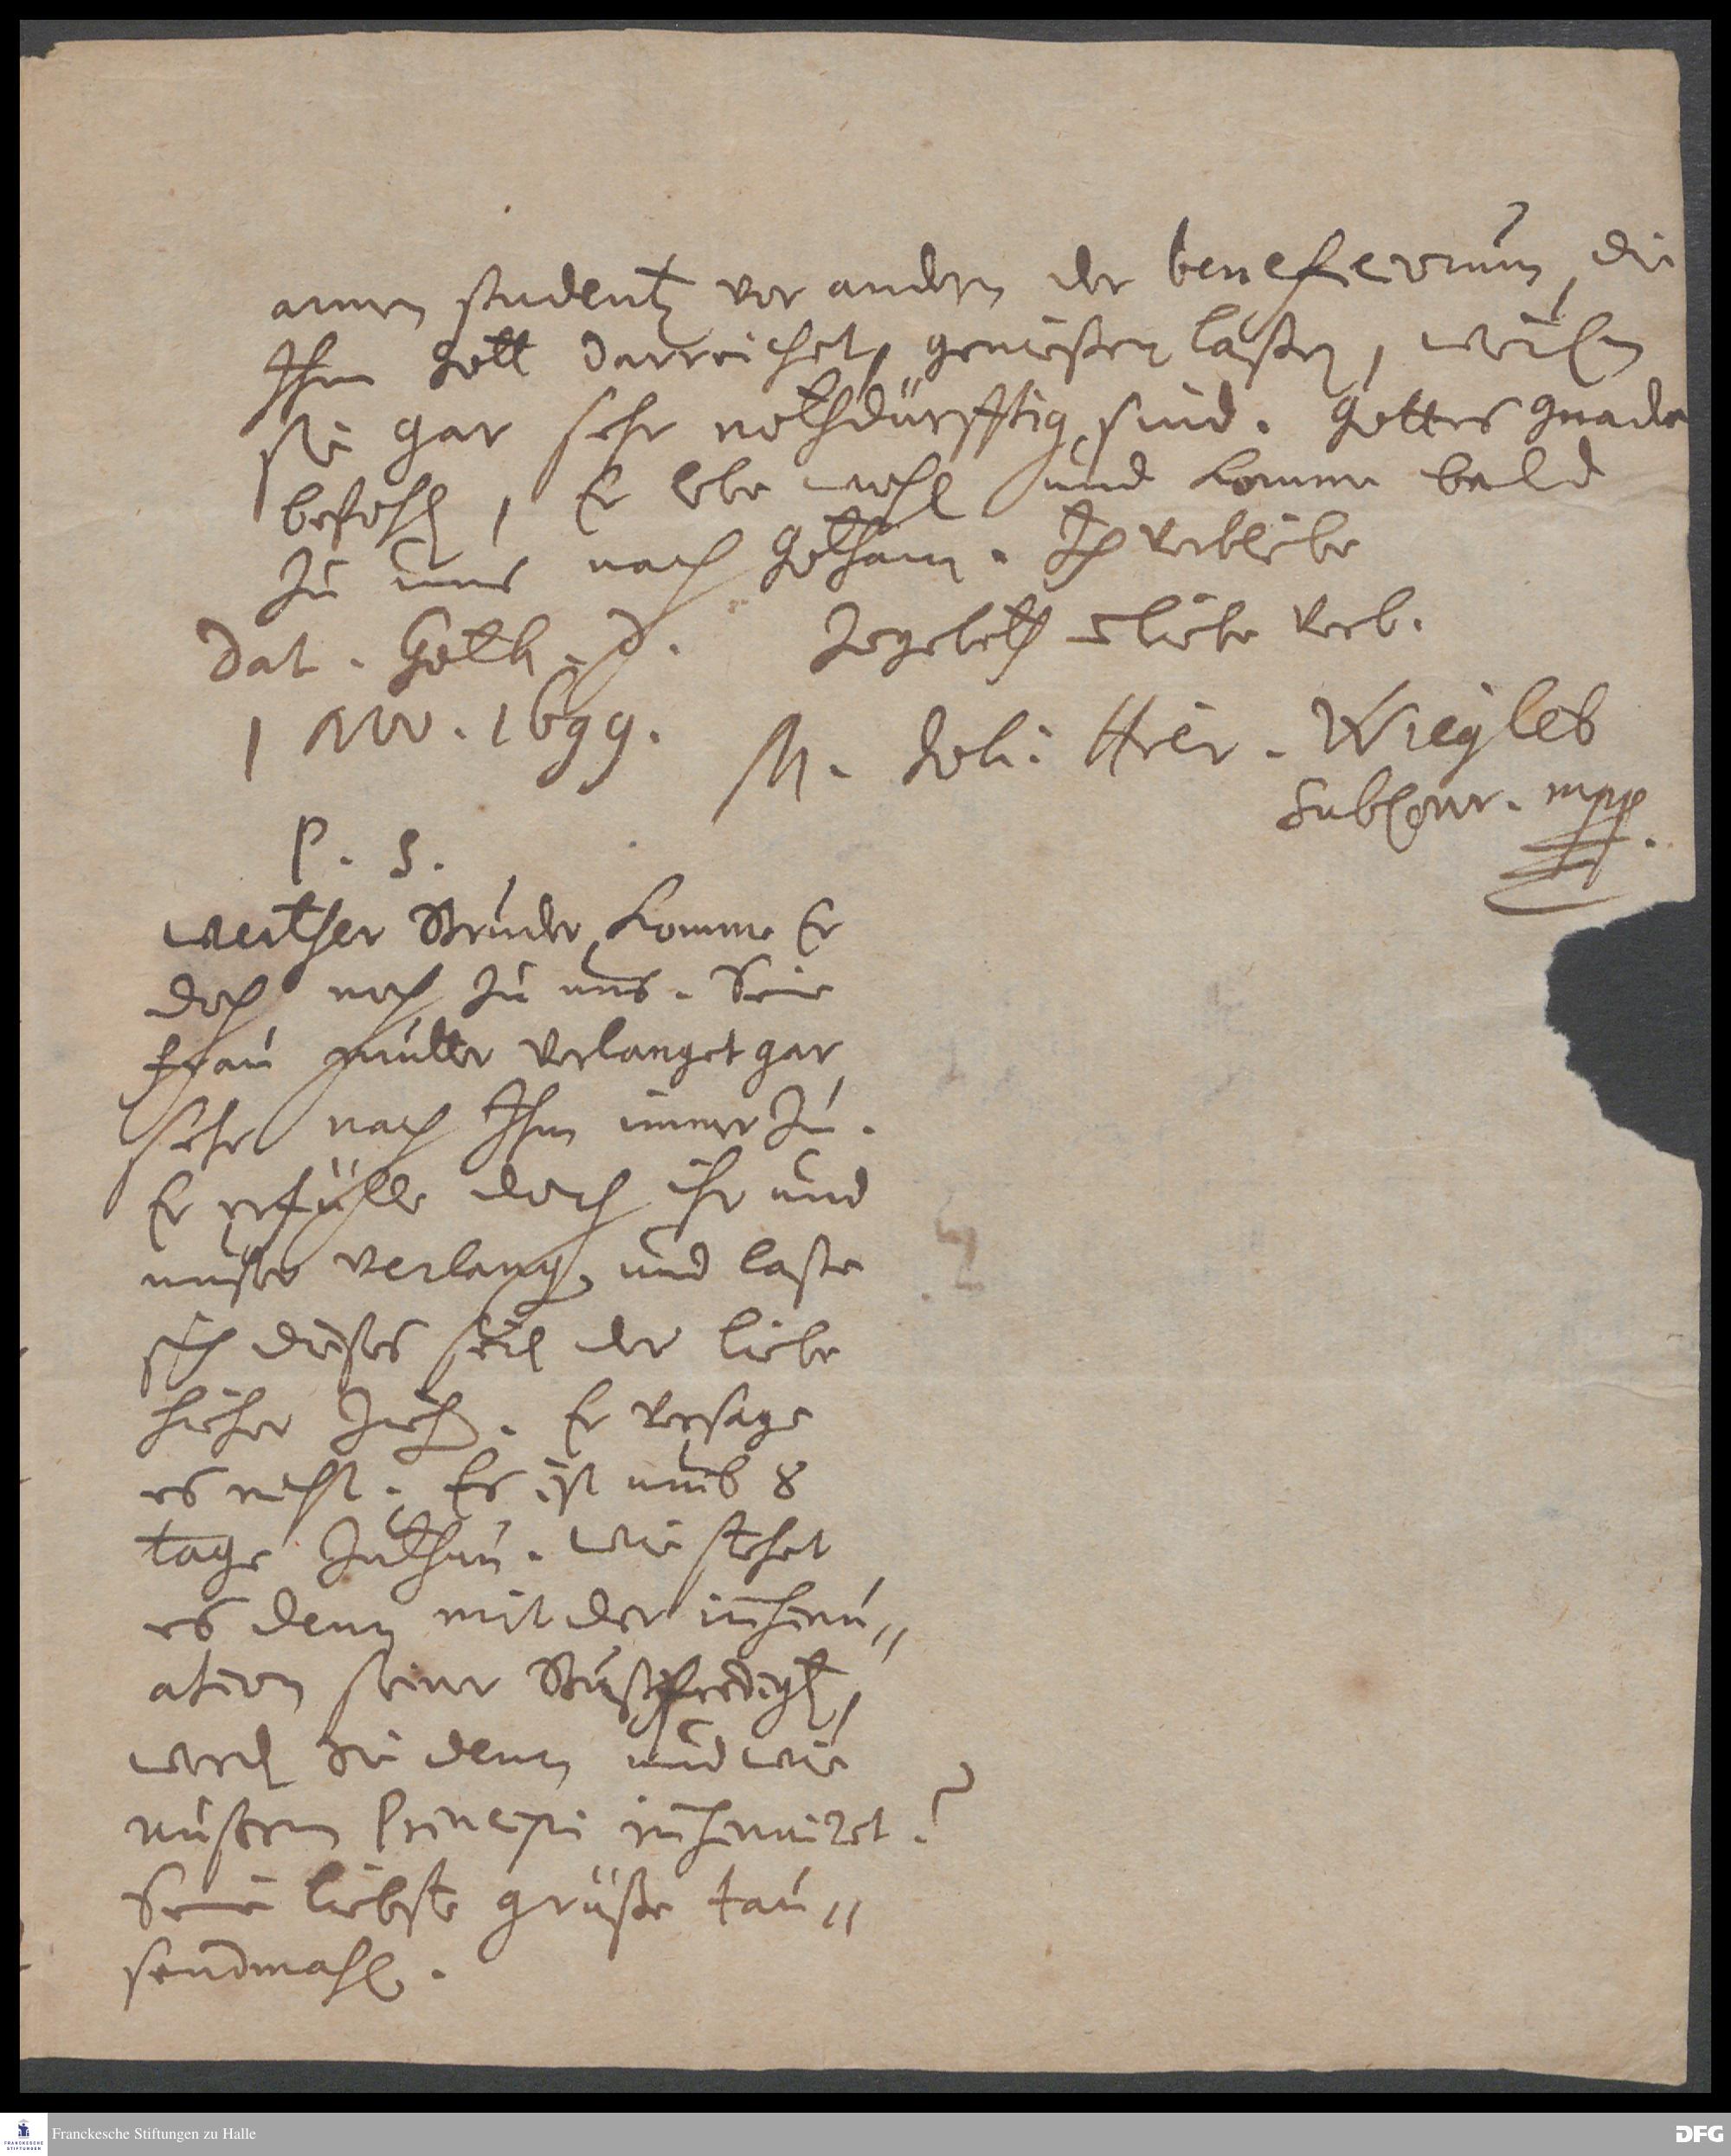 armen studenten vor andern der beneficiorum, die
Ihm Gott darreichet, genießen laßen, weilen
sie gar sehr nothdürfftig sind. Gottes Gnade
befohlen, Er lebe wohl und komme bald
zu uns nach Gotham. Ich verbleibe
Dat. Goth. d.
1 Nov. 1699.
zu gebeth u liebe verb.
M. Joh: Hier. Wiegleb
SubConr. mpp.
P. S.
werther Bruder, komme Er
doch noch zu uns. Seine
Frau mutter verlanget gar
sehr nach Ihm immer zu.
Er erfülle doch ihr und
unser verlangen und laße
sich dieses seil der liebe
hieher ziehen. Er versage
es nicht. Es ist umb 8
tage zuthun. wie stehet
es denn mit der insinu=
ation seiner Bußpredigten,
werden sie denn und wie
unserm Principi insinuiret?
Seine liebste grüße tau=
sendmahl.
Franckesche Stiftungen zu Halle
DFG